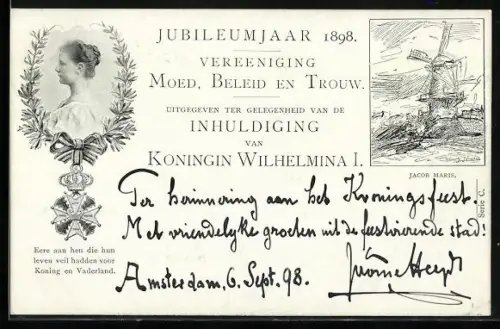 JUBILEUMJAAR 1898.
VEREENIGING
MOED, BELEID EN TROUW.
UITGEGEVEN TER GELEGENHEID VAN DE
INHULDIGING
VAN
KONINGIN WILHELMINA I.
JACOB MARIS,
Serie C.
Eere aan hen die hun
leven veil hadden voor
Koning en Vaderland.
Ter herinnering aan het Kroningsfeest.
Met vriendelyke groeten uit de feestvierende stad!
Amsterdam, 6. Sept. 98.